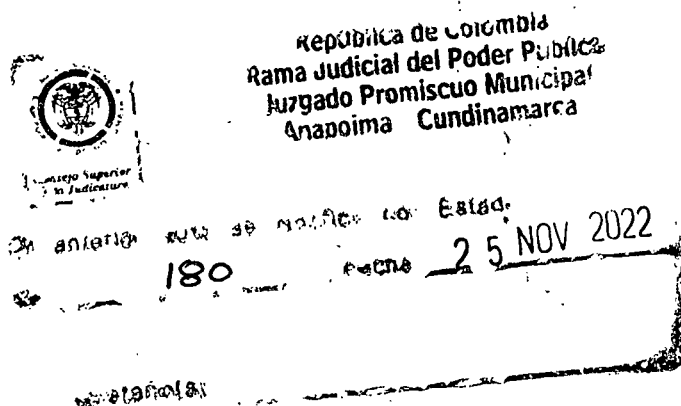 República de Colombia
Rama Judicial del Poder Público
Juzgado Promiscuo Municipal
Anapoima Cundinamarca
Consejo Superior
de la Judicatura
El anterior auto se notifico por Estado
No 180 Fecha 25 NOV 2022